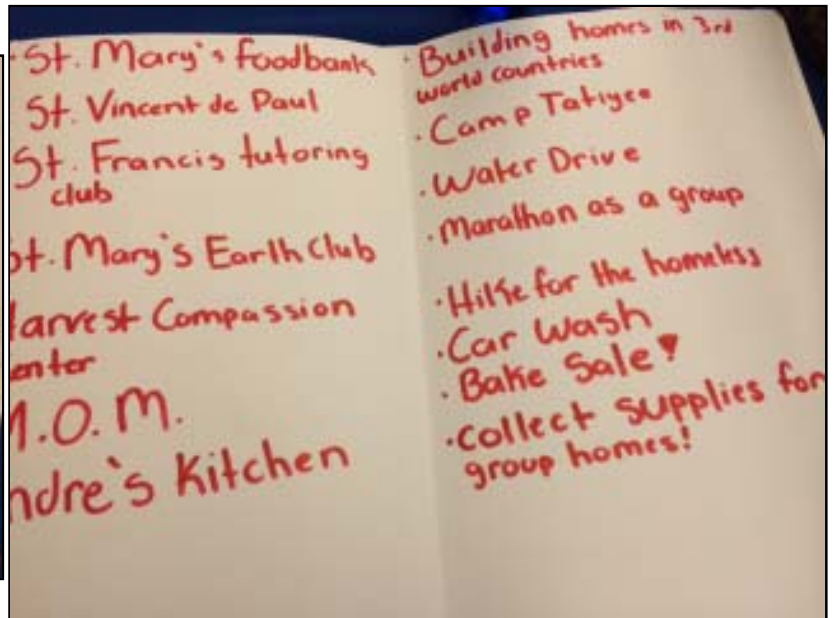 · St. Mary's foodbank
St. Vincent de Paul
St. Francis tutoring
club
St. Mary's Earth Club
Harvest Compassion
enter
M.O.M.
ndre's Kitchen
· Building homes in 3rd
world countries
· Camp Tatiyee
· Water Drive
· Marathon as a group
· Hike for the homeless
· Car Wash
· Bake Sale!
· Collect supplies for
group homes!